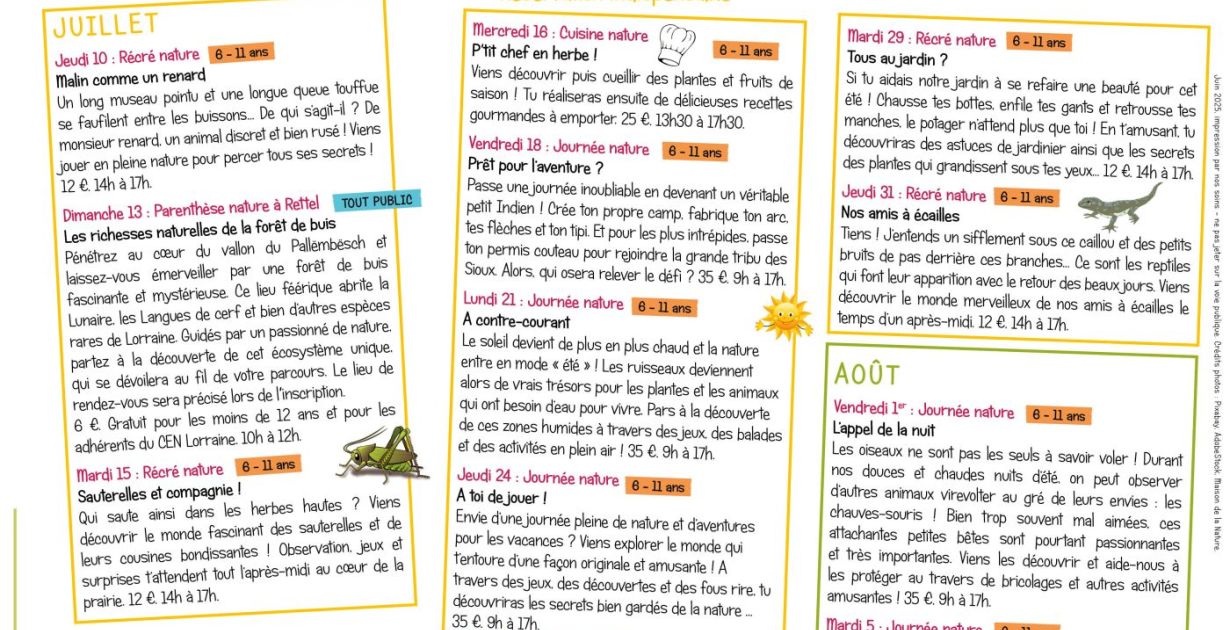 JUILLET
Jeudi 10 : Récré nature 6 - 11 ans
Malin comme un renard
Un long museau pointu et une longue queue touffue
se faufilent entre les buissons... De qui s'agit-il ? De
monsieur renard, un animal discret et bien rusé ! Viens
jouer en pleine nature pour percer tous ses secrets !
12 €. 14h à 17h.
Dimanche 13 : Parenthèse nature à Rettel TOUT PUBLIC
Les richesses naturelles de la forêt de buis
Pénétrez au cœur du vallon du Pallembësch et
laissez-vous émerveiller par une forêt de buis
fascinante et mystérieuse. Ce lieu féérique abrite la
Lunaire, les Langues de cerf et bien d'autres espèces
rares de Lorraine. Guidés par un passionné de nature,
partez à la découverte de cet écosystème unique,
qui se dévoilera au fil de votre parcours. Le lieu de
rendez-vous sera précisé lors de l'inscription.
6 €. Gratuit pour les moins de 12 ans et pour les
adhérents du CEN Lorraine. 10h à 12h.
Mardi 15 : Récré nature 6 - 11 ans
Sauterelles et compagnie !
Qui saute ainsi dans les herbes hautes ? Viens
découvrir le monde fascinant des sauterelles et de
leurs cousines bondissantes ! Observation, jeux et
surprises t'attendent tout l'après-midi au cœur de la
prairie. 12 €. 14h à 17h.
Mercredi 16 : Cuisine nature 6 - 11 ans
P'tit chef en herbe !
Viens découvrir puis cueillir des plantes et fruits de
saison ! Tu réaliseras ensuite de délicieuses recettes
gourmandes à emporter. 25 €. 13h30 à 17h30.
Vendredi 18 : Journée nature 6 - 11 ans
Prêt pour l'aventure ?
Passe une journée inoubliable en devenant un véritable
petit Indien ! Crée ton propre camp, fabrique ton arc,
tes flèches et ton tipi. Et pour les plus intrépides, passe
ton permis couteau pour rejoindre la grande tribu des
Sioux. Alors, qui osera relever le défi ? 35 €. 9h à 17h.
Lundi 21 : Journée nature 6 - 11 ans
A contre-courant
Le soleil devient de plus en plus chaud et la nature
entre en mode « été » ! Les ruisseaux deviennent
alors de vrais trésors pour les plantes et les animaux
qui ont besoin d'eau pour vivre. Pars à la découverte
de ces zones humides à travers des jeux, des balades
et des activités en plein air ! 35 €. 9h à 17h.
Jeudi 24 : Journée nature 6 - 11 ans
A toi de jouer !
Envie d'une journée pleine de nature et d'aventures
pour les vacances ? Viens explorer le monde qui
t'entoure d'une façon originale et amusante ! A
travers des jeux, des découvertes et des fous rire, tu
découvriras les secrets bien gardés de la nature ...
35 €. 9h à 17h.
Mardi 29 : Récré nature 6 - 11 ans
Tous au jardin ?
Si tu aidais notre jardin à se refaire une beauté pour cet
été ! Chausse tes bottes, enfile tes gants et retrousse tes
manches, le potager n'attend plus que toi ! En t'amusant, tu
découvriras des astuces de jardinier ainsi que les secrets
des plantes qui grandissent sous tes yeux... 12 €. 14h à 17h.
Jeudi 31 : Récré nature 6 - 11 ans
Nos amis à écailles
Tiens ! J'entends un sifflement sous ce caillou et des petits
bruits de pas derrière ces branches... Ce sont les reptiles
qui font leur apparition avec le retour des beaux jours. Viens
découvrir le monde merveilleux de nos amis à écailles le
temps d'un après-midi. 12 €. 14h à 17h.
AOÛT
Vendredi 1er : Journée nature 6 - 11 ans
L'appel de la nuit
Les oiseaux ne sont pas les seuls à savoir voler ! Durant
nos douces et chaudes nuits d'été, on peut observer
d'autres animaux virevolter au gré de leurs envies : les
chauves-souris ! Bien trop souvent mal aimées, ces
attachantes petites bêtes sont pourtant passionnantes
et très importantes. Viens les découvrir et aide-nous à
les protéger au travers de bricolages et autres activités
amusantes ! 35 €. 9h à 17h.
Mardi 5 : Journée nature 6 - 11 ans
Juin 2025, impression par nos soins - ne pas jeter sur la voie publique. Crédits photos : Pixabay, AdobeStock, Maison de la Nature.